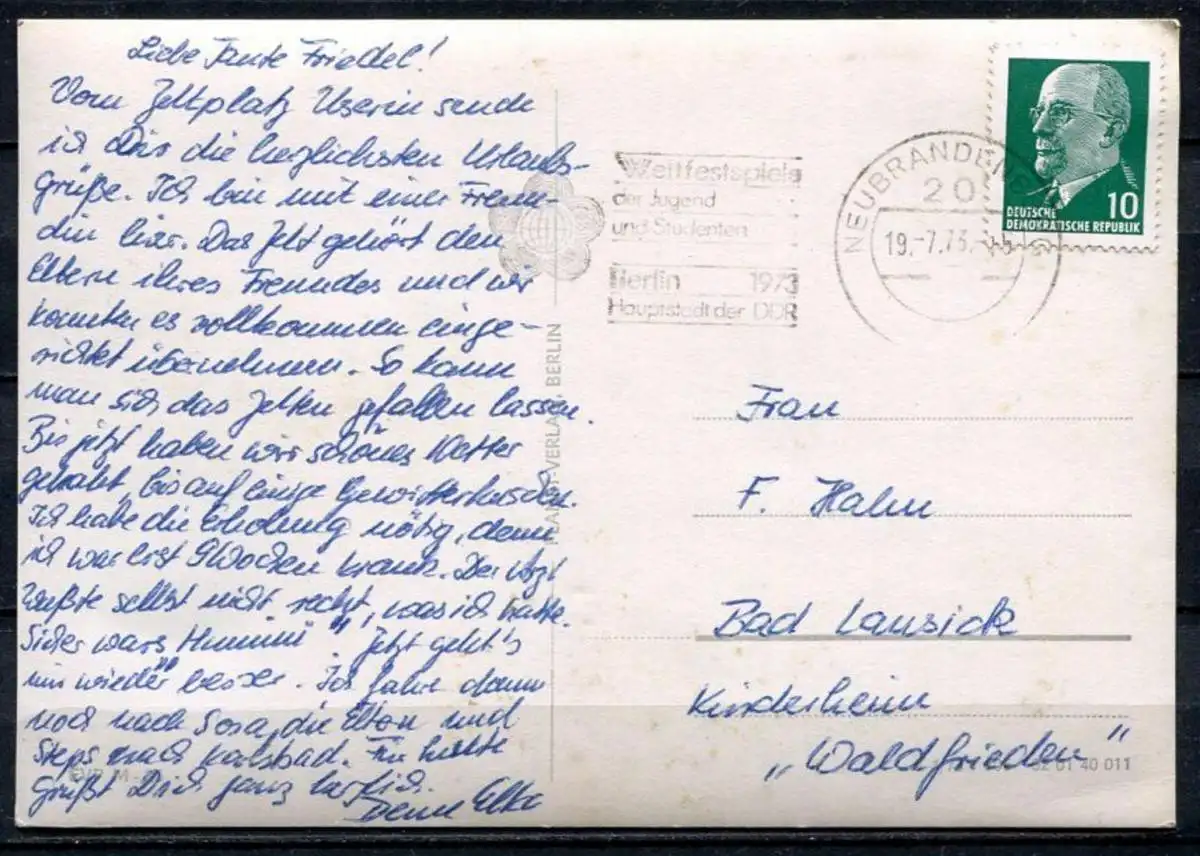 Liebe Tante Friedel!
Vom Zeltplatz Userin sende
ich Dir die herzlichsten Urlaubs-
grüße. Ich bin mit einer Freun-
din hier. Das Zelt gehört den
Eltern ihres Freundes und wir
konnten es vollkommen einge-
richtet übernehmen. So kann
man sich das Zelten gefallen lassen.
Bis jetzt haben wir schönes Wetter
gehabt, bis auf einige Gewitterhuschen.
Ich habe die Erholung nötig, denn
ich war erst 9 Wochen krank. Der Arzt
wußte selbst nicht recht, was ich hatte.
Sicher wars "Humini". Jetzt geht's
mir wieder besser. Ich fahre dann
noch nach Sosa, die Eltern und
Steps nach Karlsbad. Für heute
grüßt Dich ganz herzlich
Deine Elke
PLANET-VERLAG BERLIN
Weltfestspiele
der Jugend
und Studenten
Berlin 1973
Hauptstadt der DDR
20
19.-7.73.
10
DEUTSCHE
DEMOKRATISCHE REPUBLIK
Frau
F. Hahn
Bad Lausick
Kinderheim
„Waldfrieden"
01 40 011